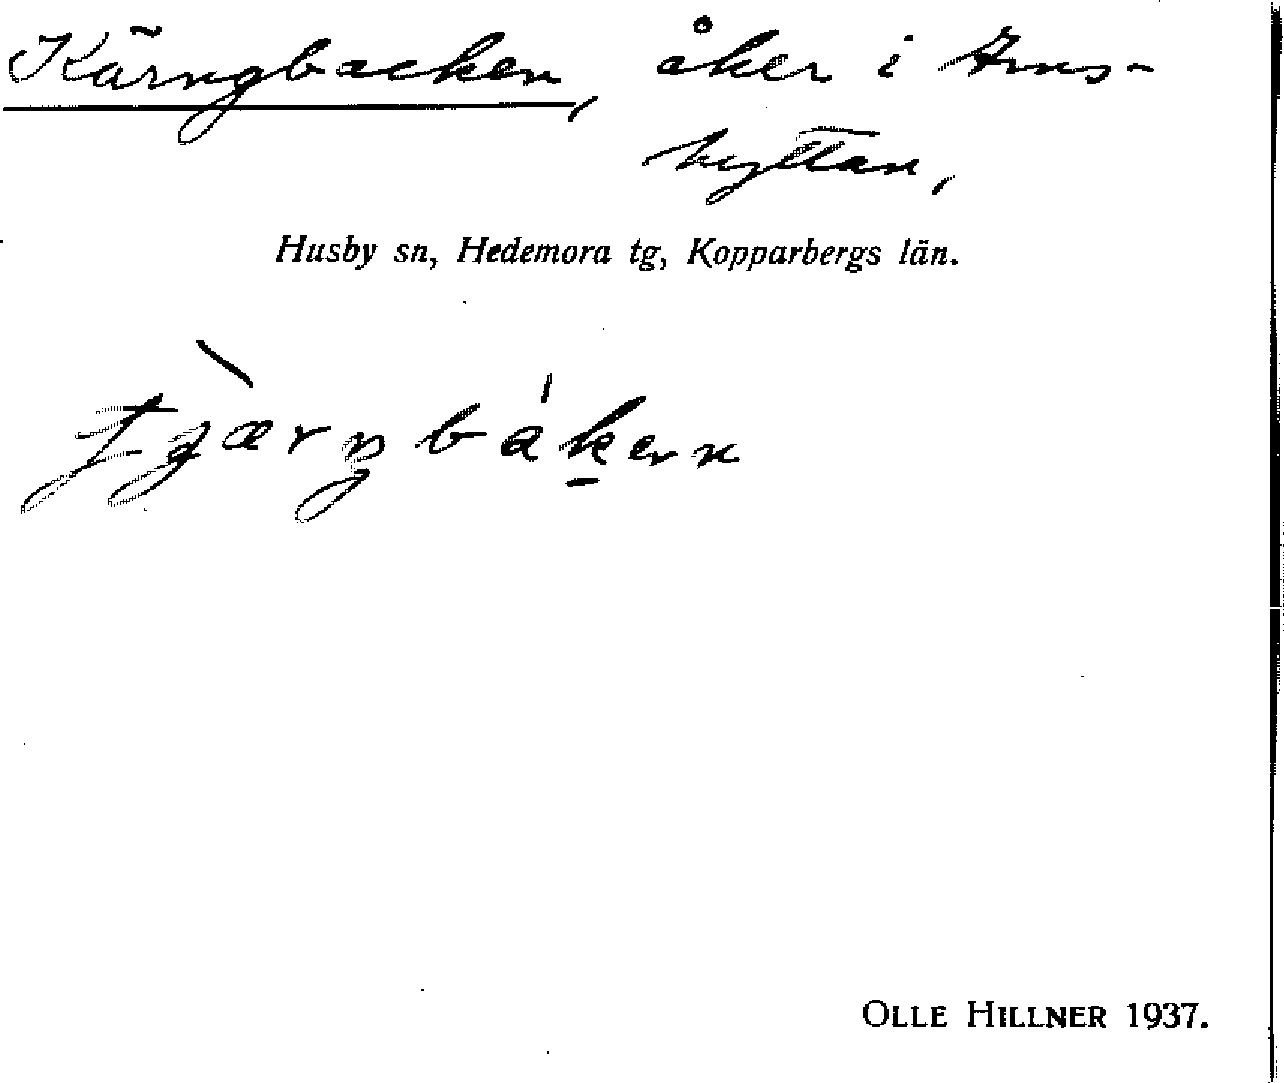 Kärngbacken, åker i Arns-
hyttan,
Husby sn, Hedemora tg, Kopparbergs län.
OLLE HILLNER 1937.